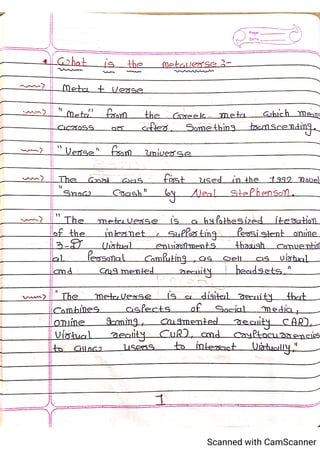 Page:
Date:
* What is the metaverse :-
Meta + Verse
"Meta" from the Greek meta which means
across or after. Something transcending.
"Verse" from universe
The Word was first used in the 1992 novel
"Snow Crash" by Neal Stephenson.
"The metaverse is a hypothesized iteration
of the internet, supporting Persistent online
3-D Virtual environments through conventin
al Personal Computing, as well as virtual
and augmented reality headsets."
"The metaverse is a digital reality that
Combines aspects of Social media,
online Gaming, augmented reality (AR),
Virtual reality (VR), and cryptocurrencies
to allow users to interact Virtually."
1
Scanned with CamScanner